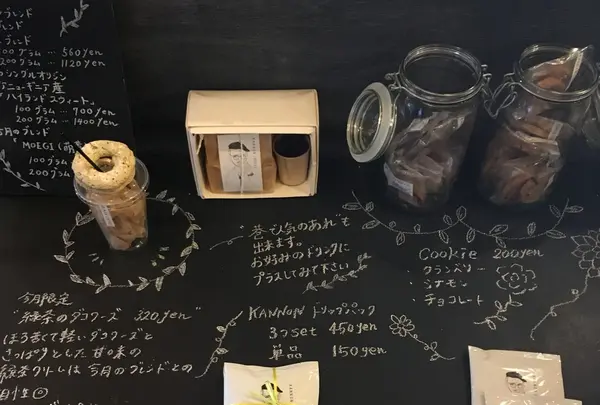 ブレンド
ブレンド
ブレンド
100グラム … 560yen
200グラム … 1120yen
シングルオリジン
プニューギニア産
ハイランドスウィート」
100グラム … 700yen
200グラム … 1400yen
今月のブレンド
MOEGI(萌
100グラム
200グラム
"巷で人気のあれ"も
出来ます。
お好みのドリンクに
プラスしてみて下さい
Cookie 200yen
・クランベリー
・シナモン
・チョコレート
今月限定
"緑茶のダクワーズ 320yen"
ほろ苦くて軽いダクワーズと
さっぱりとした甘味の
緑茶クリームは今月のブレンドとの
相性◎
KANNON ドリップパック
3コset 450yen
単品 150yen